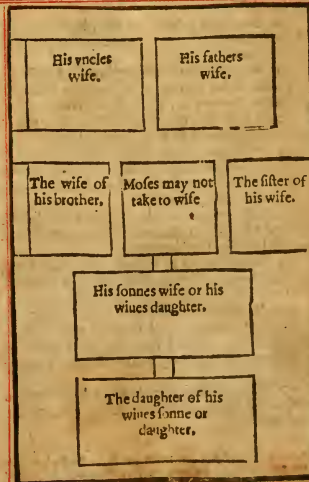 His vncles
wife.
His fathers
wife.
The wife of
his brother.
Moſes may not
take to wife
The ſiſter of
his wife.
His ſonnes wife or his
wiues daughter.
The daughter of his
wiues ſonne or
daughter.